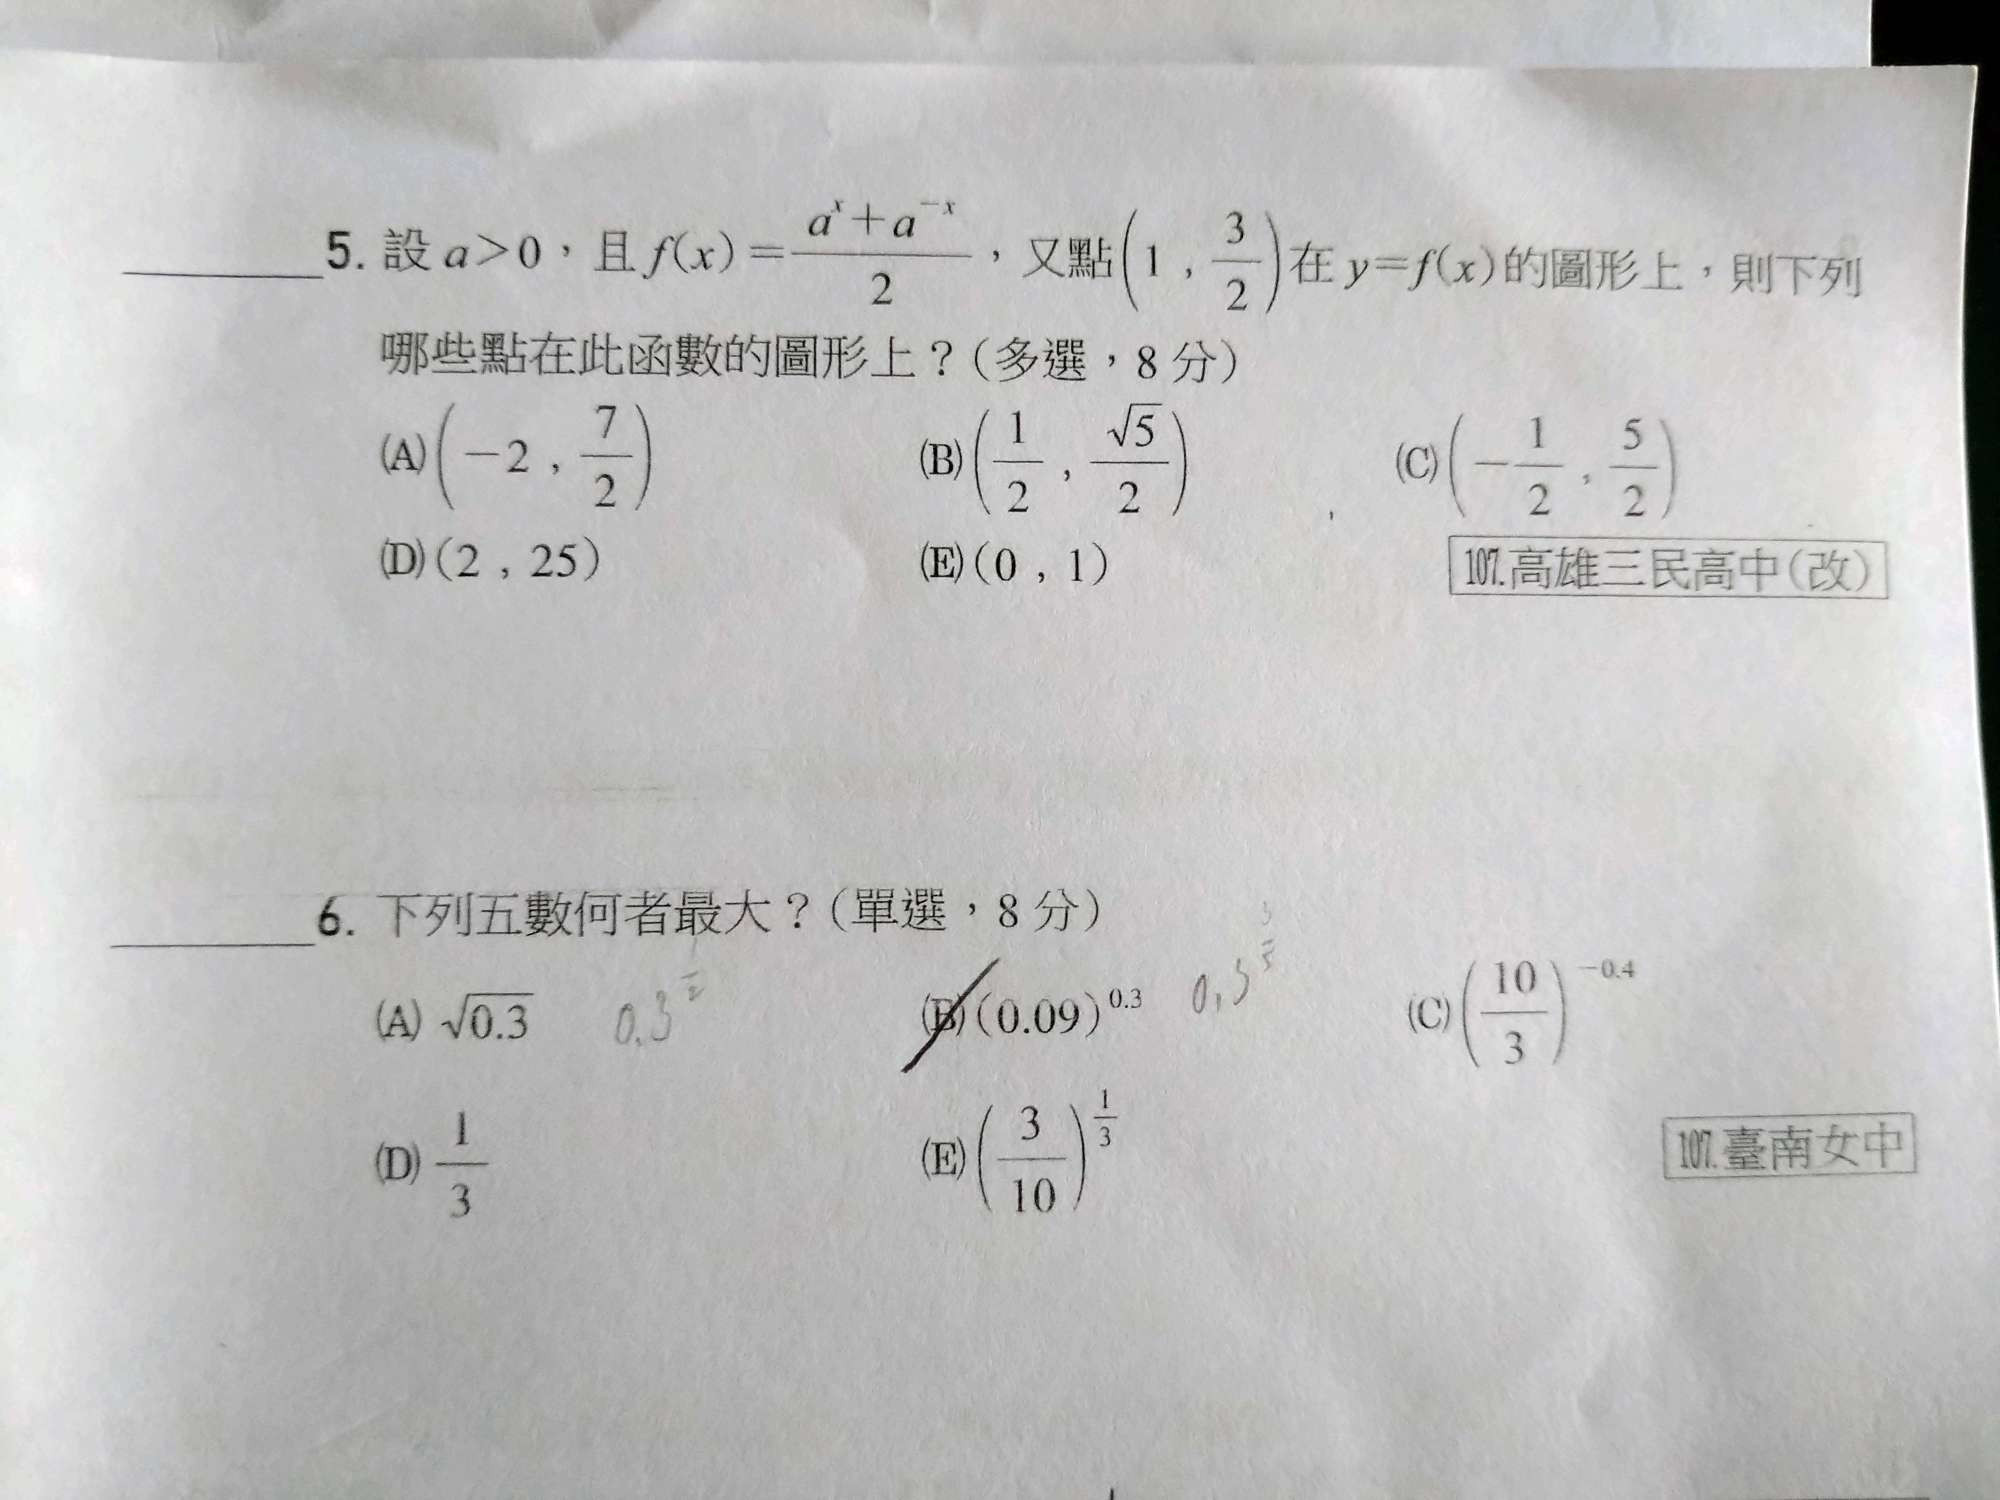 5. 設 a>0，且 f(x)=(a^x+a^{-x})/2，又點(1，3/2)在 y=f(x)的圖形上，則下列
哪些點在此函數的圖形上？(多選，8 分)
(A)(−2，7/2) (B)(1/2，√5/2) (C)(−1/2，5/2)
(D)(2，25) (E)(0，1) 107.高雄三民高中(改)
6. 下列五數何者最大？(單選，8 分)
(A) √0.3 0.3^{1/2} (B)(0.09)^{0.3} 0.3^{3/5} (C)(10/3)^{−0.4}
(D) 1/3 (E)(3/10)^{1/3} 107.臺南女中